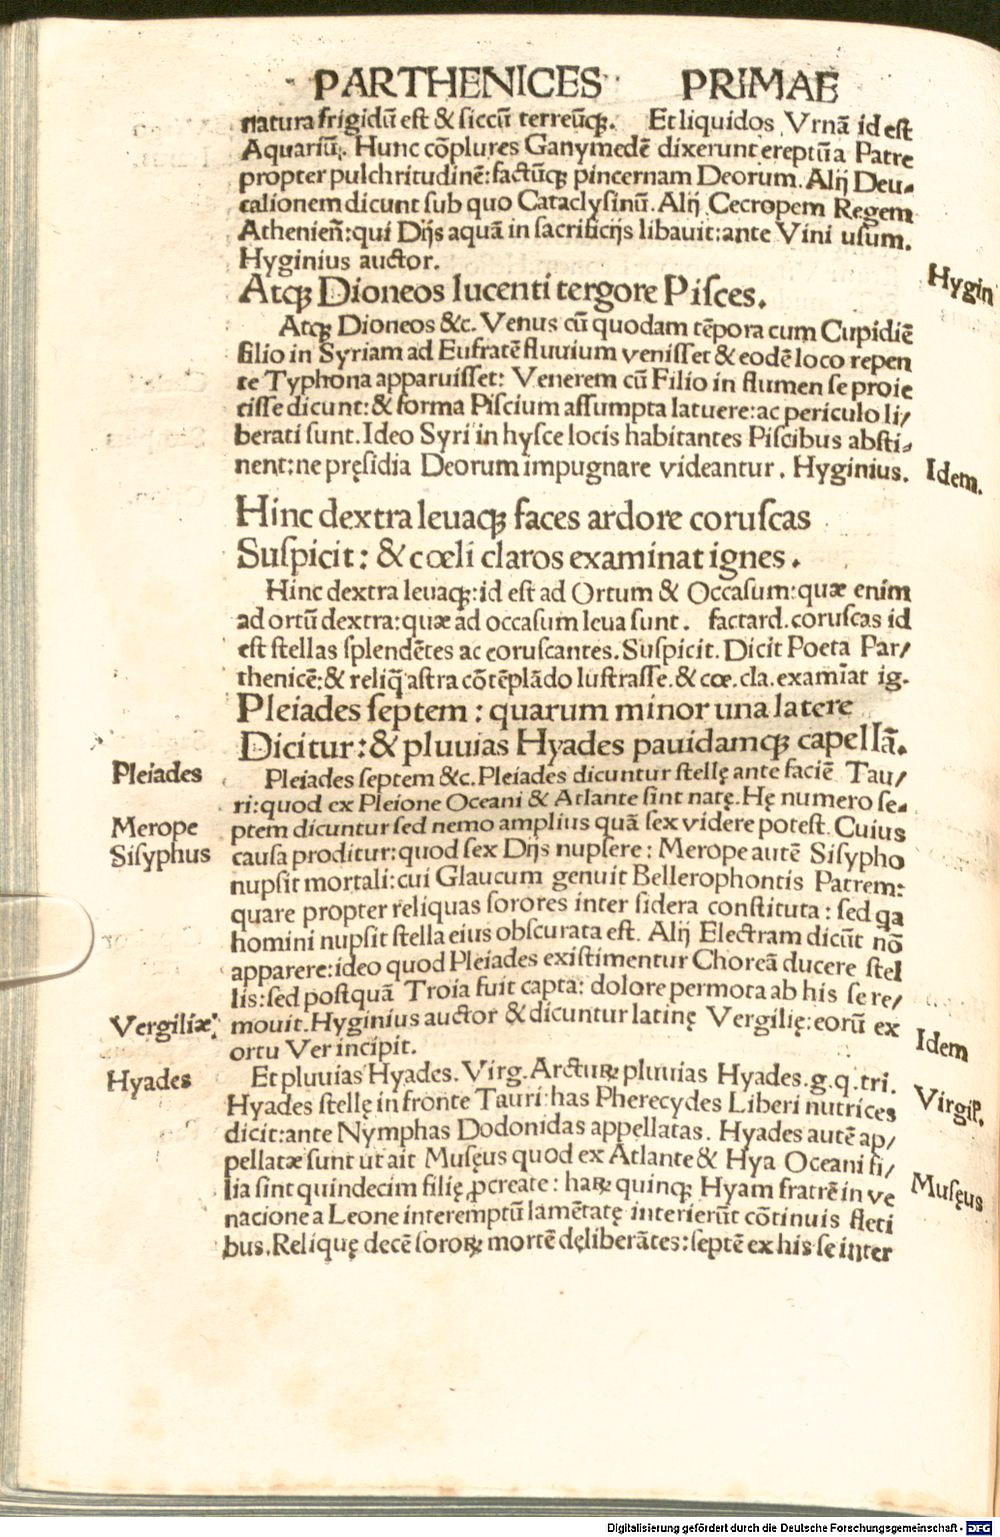 PARTHENICES PRIMAE
natura frigidū est & siccū terreūqꝫ. Et liquidos Vrnā id est
Aquariū. Hunc cōplures Ganymedē dixerunt ereptū a Patre
propter pulchritudinē: factūqꝫ pincernam Deorum. Alij Deu-
calionem dicunt sub quo Cataclysmū. Alij Cecropem Regem
Athenien̄: qui Dijs aquā in sacrificijs libauit: ante Vini usum.
Hyginius auctor.
Hygin
Atqꝫ Dioneos lucenti tergore Pisces.
Atqꝫ Dioneos &c. Venus cū quodam tēpora cum Cupidiē
filio in Syriam ad Eufratē fluuium venisset & eodē loco repen
te Typhona apparuisset: Venerem cū Filio in flumen se proie
cisse dicunt: & forma Piscium assumpta latuere: ac periculo li/
berati sunt. Ideo Syri in hysce locis habitantes Piscibus absti-
nent: ne pręsidia Deorum impugnare videantur. Hyginius.
Idem.
Hinc dextra leuaqꝫ faces ardore coruscas
Suspicit: & cœli claros examinat ignes.
Hinc dextra leuaqꝫ: id est ad Ortum & Occasum: quæ enim
ad ortū dextra: quæ ad occasum leua sunt. factard. coruscas id
est stellas splendētes ac coruscantes. Suspicit. Dicit Poeta Par/
thenicē: & reliq̄ astra cōtēplādo lustrasse. & cœ. cla. examīat ig.
Pleiades septem: quarum minor una latere
Dicitur: & pluuias Hyades pauidamqꝫ capellā.
Pleiades
Pleiades septem &c. Pleiades dicuntur stellę ante faciē Tau/
ri: quod ex Pleione Oceani & Atlante sint natę. Hę numero se-
Merope
ptem dicuntur sed nemo amplius quā sex videre potest. Cuius
Sisyphus
causa proditur: quod sex Dijs nupsere: Merope autē Sisypho
nupsit mortali: cui Glaucum genuit Bellerophontis Patrem:
quare propter reliquas sorores inter sidera constituta: sed qa
homini nupsit stella eius obscurata est. Alij Electram dicūt nō
apparere: ideo quod Pleiades existimentur Choreā ducere stel
lis: sed postquā Troia fuit capta: dolore permota ab his se re/
Vergiliæ
mouit. Hyginius auctor & dicuntur latinę Vergilię: eorū ex
Idem
ortu Ver incipit.
Hyades
Et pluuias Hyades. Virg. Arcturꝝ pluuias Hyades. g. q. tri.
Virgil.
Hyades stellę in fronte Tauri: has Pherecydes Liberi nutrices
dicit: ante Nymphas Dodonidas appellatas. Hyades autē ap/
pellatæ sunt ut ait Musęus quod ex Atlante & Hya Oceani fi/
Musęus
lia sint quindecim filię ꝓcreate: haꝝ quinqꝫ Hyam fratrē in ve
nacione a Leone interemptū lamētatę interierūt cōtinuis fleti
bus. Reliquę decē soroꝝ mortē dęliberātes: septē ex his se inter
Digitalisierung gefördert durch die Deutsche Forschungsgemeinschaft - DFG